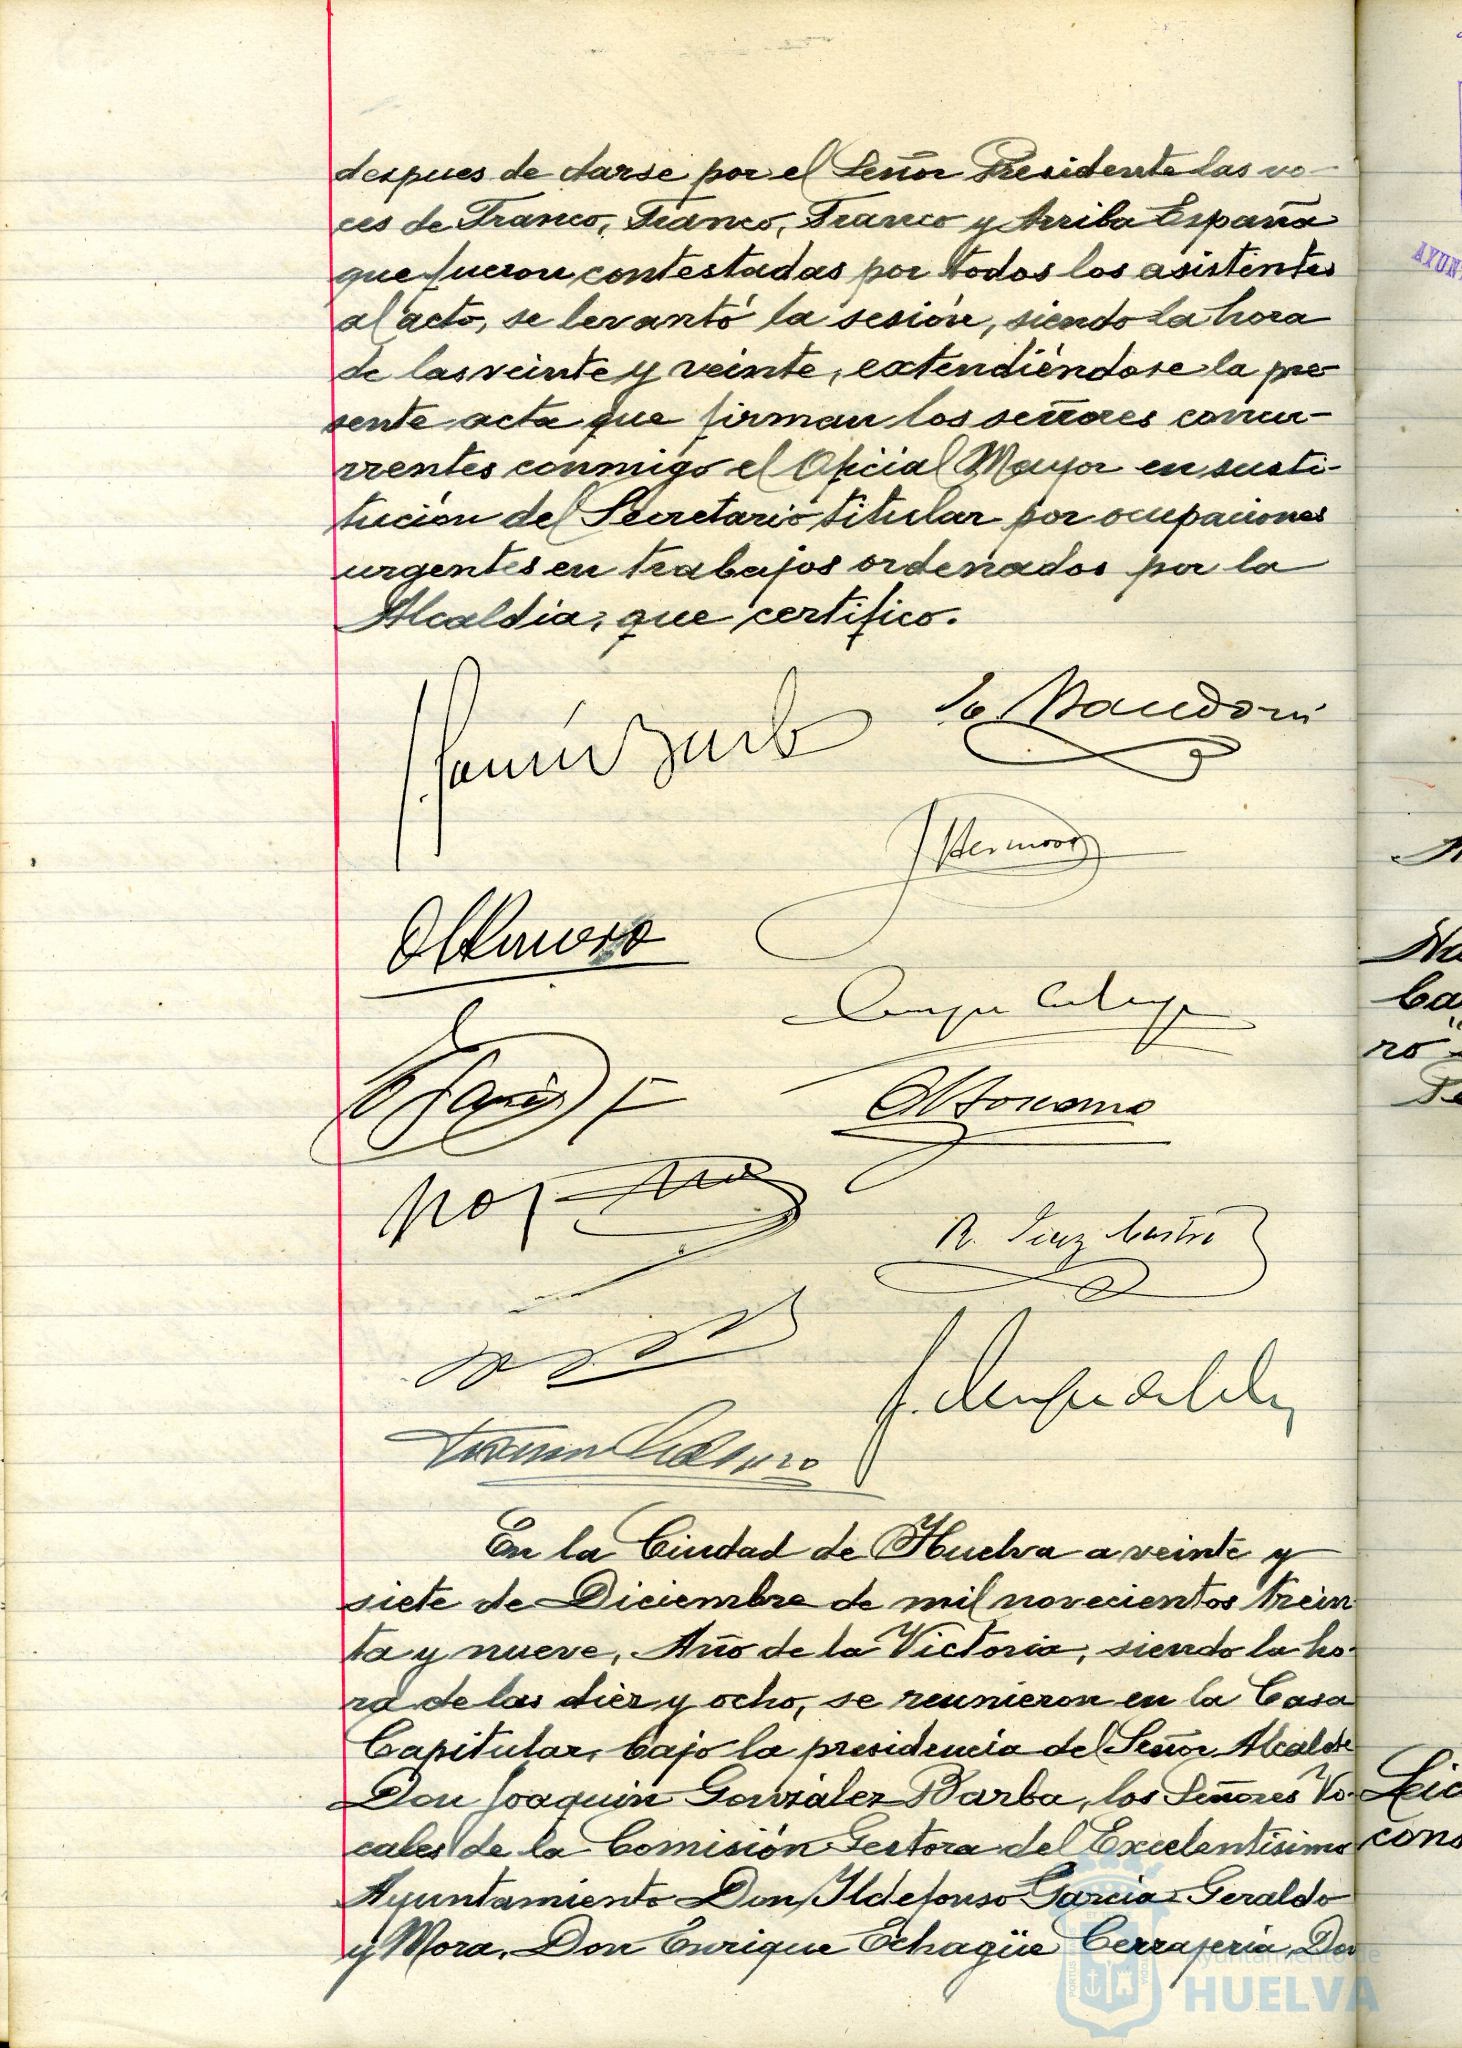 despues de darse por el Señor Presidente las vo-
ces de Franco, Franco, Franco y Arriba España
que fueron contestadas por todos los asistentes
al acto, se levantó la sesión, siendo la hora
de las veinte y veinte, extendiéndose la pre-
sente acta que firman los señores concu-
rrentes conmigo el Oficial Mayor en susti-
tución del Secretario titular por ocupaciones
urgentes en trabajos ordenados por la
Alcaldia, que certifico.
R. Diaz Castro
En la Ciudad de Huelva a veinte y
siete de Diciembre de mil novecientos trein
ta y nueve, Año de la Victoria, siendo la ho-
ra de las diez y ocho, se reunieron en la Casa
Capitular, bajo la presidencia del Señor Alcalde
Don Joaquin González Barba, los Señores Vo-
cales de la Comisión Gestora del Excelentísimo
Ayuntamiento Don Ildefonso Garcia-Geraldo
y Mora, Don Enrique Echagüe Cerrajeria, Don
Ayuntamiento de
HUELVA